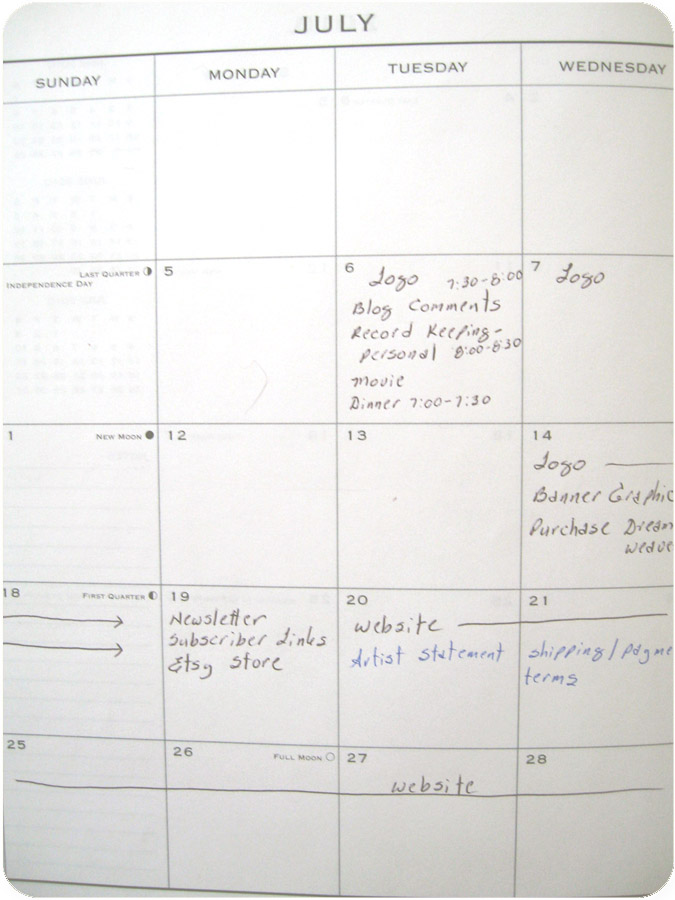 JULY
SUNDAY MONDAY TUESDAY WEDNESDAY
LAST QUARTER
INDEPENDENCE DAY
5
6
Logo 7:30-8:00
Blog Comments
Record Keeping-
personal 8:00-8:30
movie
Dinner 7:00-7:30
7
Logo
1
NEW MOON
12
13
14
Logo
Banner Graphic
Purchase Dream
weave
18
FIRST QUARTER
19
Newsletter
Subscriber Links
Etsy Store
20
website
Artist Statement
21
shipping/payme
terms
25
26
FULL MOON
27
website
28